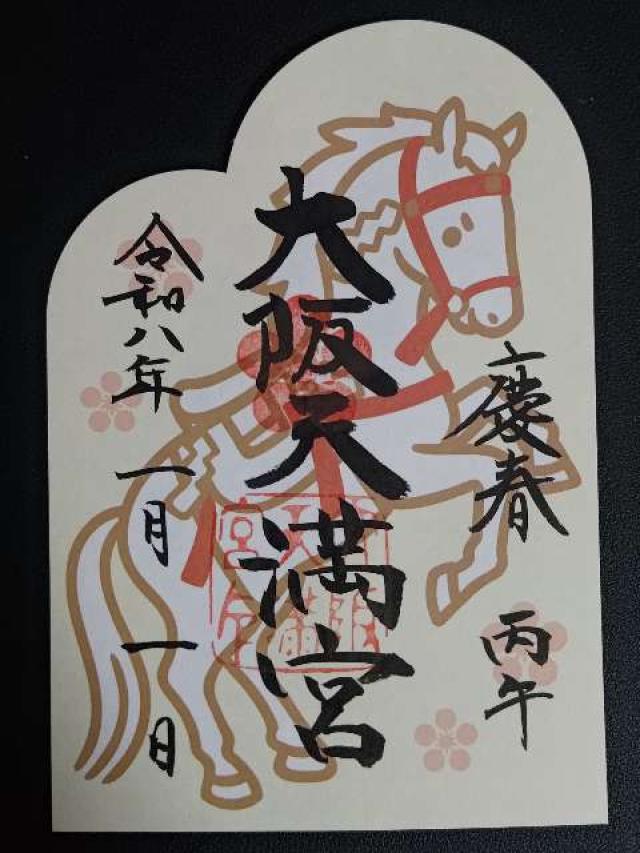 慶春
丙午
大阪天満宮
令和八年
一月一日